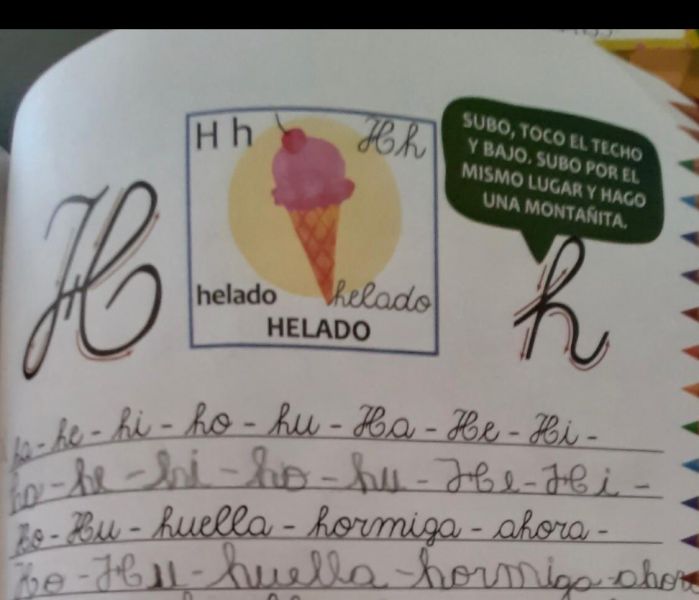 H h
Hh
SUBO, TOCO EL TECHO
Y BAJO. SUBO POR EL
MISMO LUGAR Y HAGO
UNA MONTAÑITA.
H
h
helado
helado
HELADO
ha - he - hi - ho - hu - Ha - He - Hi -
ha - he - hi - ho - hu - He - Hi -
Ho - Hu - huella - hormiga - ahora -
Ho - Hu - huella - hormiga - ahora